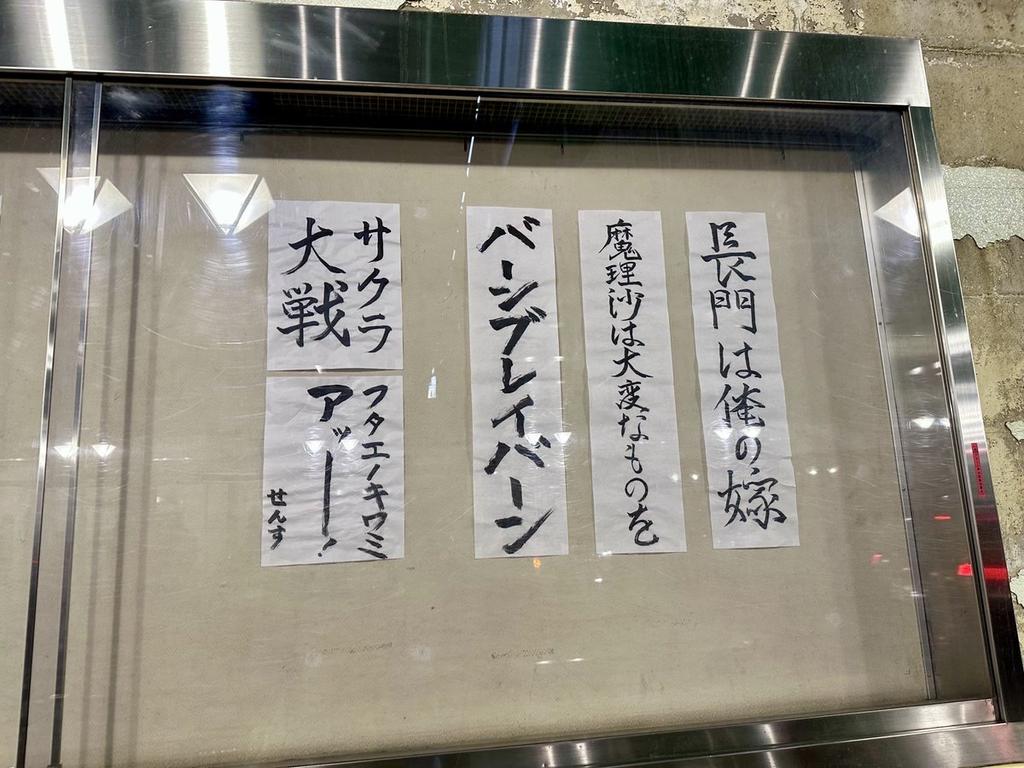 長門は俺の嫁
魔理沙は大変なものを
バーンブレイバーン
サクラ
大戦
フタエノキワミ
アッー！
せんす